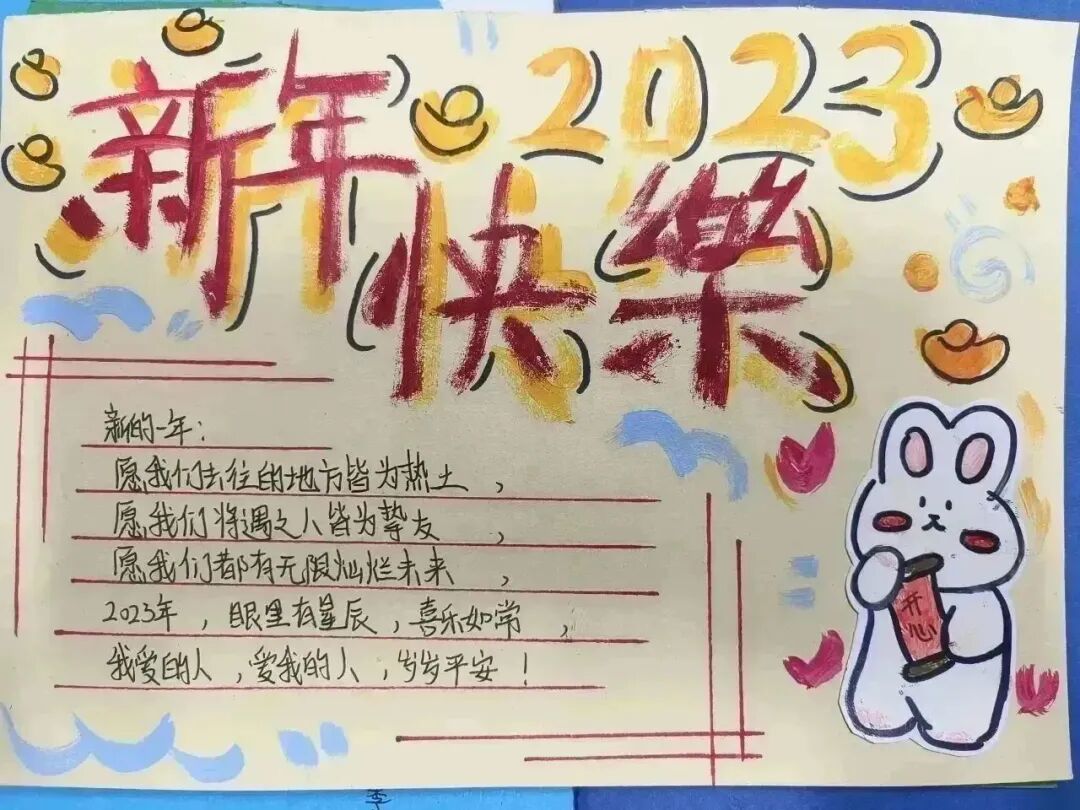 2023
新年
快樂
新的一年：
愿我们去往的地方皆为热土，
愿我们将遇之人皆为挚友，
愿我们都有无限灿烂未来，
2023年，眼里有星辰，喜乐如常，
我爱的人，爱我的人，岁岁平安！
开心
李